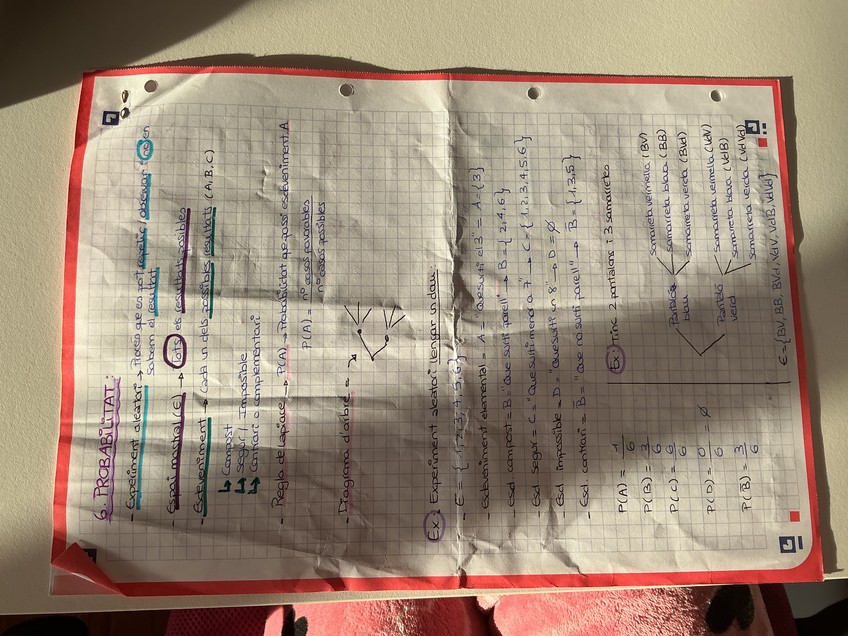 6. PROBABILITAT:
- Experiment aleatori → Procés que es pot repetir i observar i no en
sabem el resultat
- Espai mostral (E) → Tots els resultats possibles
- Esdeveniment → Cada un dels possibles resultats (A, B, C)
↳ Compost
↳ Segur / Impossible
↳ Contrari o complementari
- Regla de Laplace → P(A) → Probabilitat que passi esdeveniment A
P(A) = nº casos favorables
nº casos possibles
- Diagrama d'arbre =
Ex: Experiment aleatori llençar un dau.
- E = {1, 2, 3, 4, 5, 6}
- Esdeveniment elemental = A = "Que surti el 3" = A = {3}
- Esd. compost = B = "Que surti parell" → B = {2, 4, 6}
- Esd. segur = C = "Que surti menor a 7" → C = {1, 2, 3, 4, 5, 6}
- Esd. impossible = D = "Que surti un 8" → D = ∅
- Esd. contrari = B̅ = "Que no surti parell" → B̅ = {1, 3, 5}
P(A) = 1/6
P(B) = 3/6
P(C) = 6/6
P(D) = 0/6 = ∅
P(B̅) = 3/6
Ex: Tinc 2 pantalons i 3 samarretes
Pantaló
blau
Samarreta vermella (BV)
Samarreta blava (BB)
Samarreta verda (BVd)
Pantaló
verd
Samarreta vermella (VdV)
Samarreta blava (VdB)
Samarreta verda (VdVd)
E = {BV, BB, BVd, VdV, VdB, VdVd}